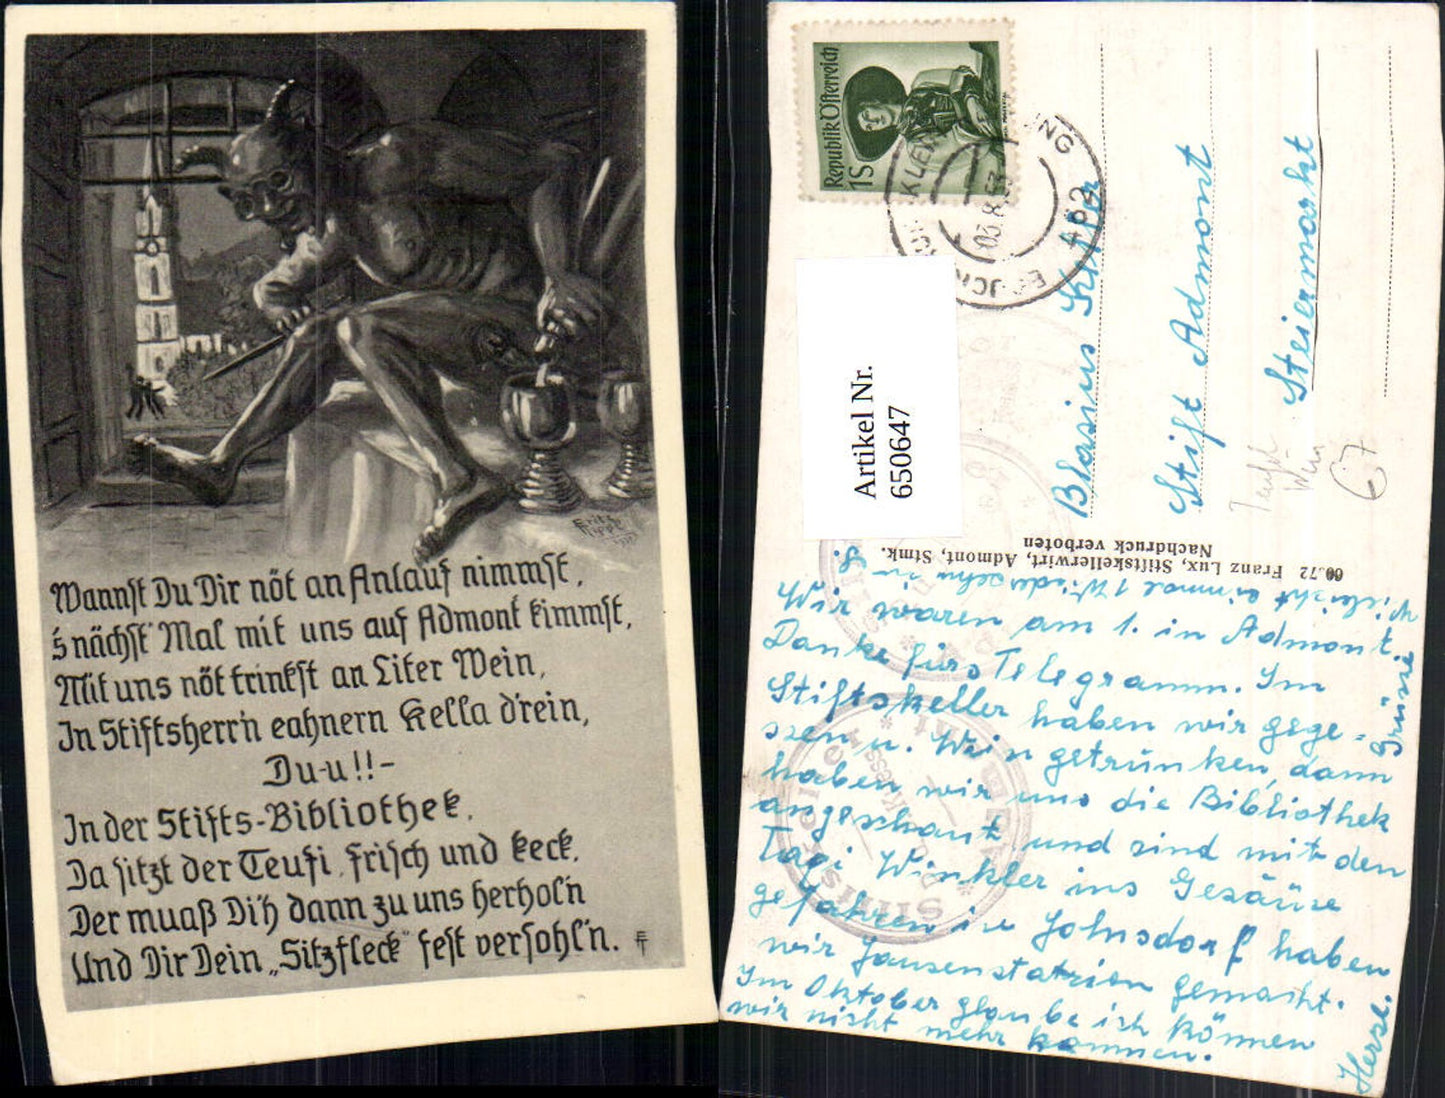 Wannst Du Dir nöt an Anlauf nimmst,
's nächst' Mal mit uns auf Admont kimmst,
Mit uns nöt trinkst an Liter Wein,
In Stiftsherr'n eahnern Kella d'rein,
Du-u!!-
In der Stifts-Bibliothek,
Da sitzt der Teufi, frisch und keck,
Der muaß Di'h dann zu uns herhol'n
Und Dir Dein „Sitzfleck" fest versohl'n.
Republik Österreich
1S
03.8.53
Artikel Nr.
650647
Blasius
Stift Admont
Steiermarkt
Teufel
Wein
67
60.72 Franz Lux, Stiftskellerwirt, Admont, Stmk.
Nachdruck verboten
Wir waren am 1. in Admont.
Danke fürs Telegramm. Im
Stiftskeller haben wir gege-
ssen u. Wein getrunken, dann
haben wir uns die Bibliothek
angeschaut und sind mit den
Tagi Winkler ins Gesäuse
gefahren in Johnsdorf haben
wir Jausenstation gemacht.
Im Oktober glaube ich können
wir nicht mehr kommen.
Herzl.
Grüsse